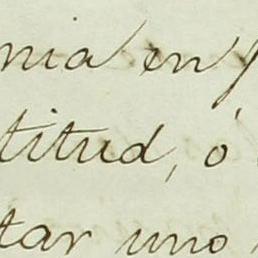 nia en
titud, ó
tar uno